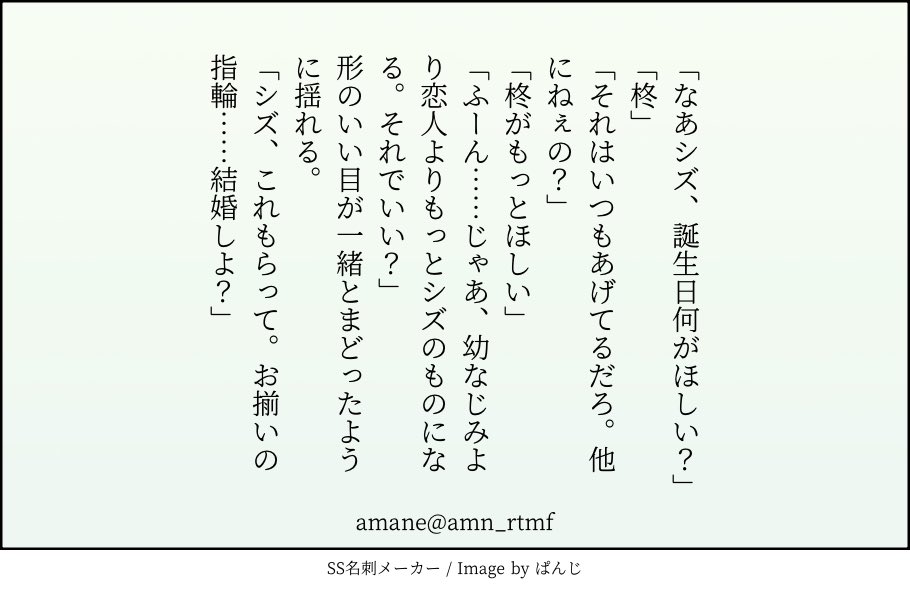 「なあシズ、誕生日何がほしい？」
「柊」
「それはいつもあげてるだろ。他
にねぇの？」
「柊がもっとほしい」
「ふーん……じゃあ、幼なじみよ
り恋人よりもっとシズのものにな
る。それでいい？」
形のいい目が一緒とまどったよう
に揺れる。
「シズ、これもらって。お揃いの
指輪……結婚しよ？」
amane@amn_rtmf
SS名刺メーカー / Image by ぱんじ